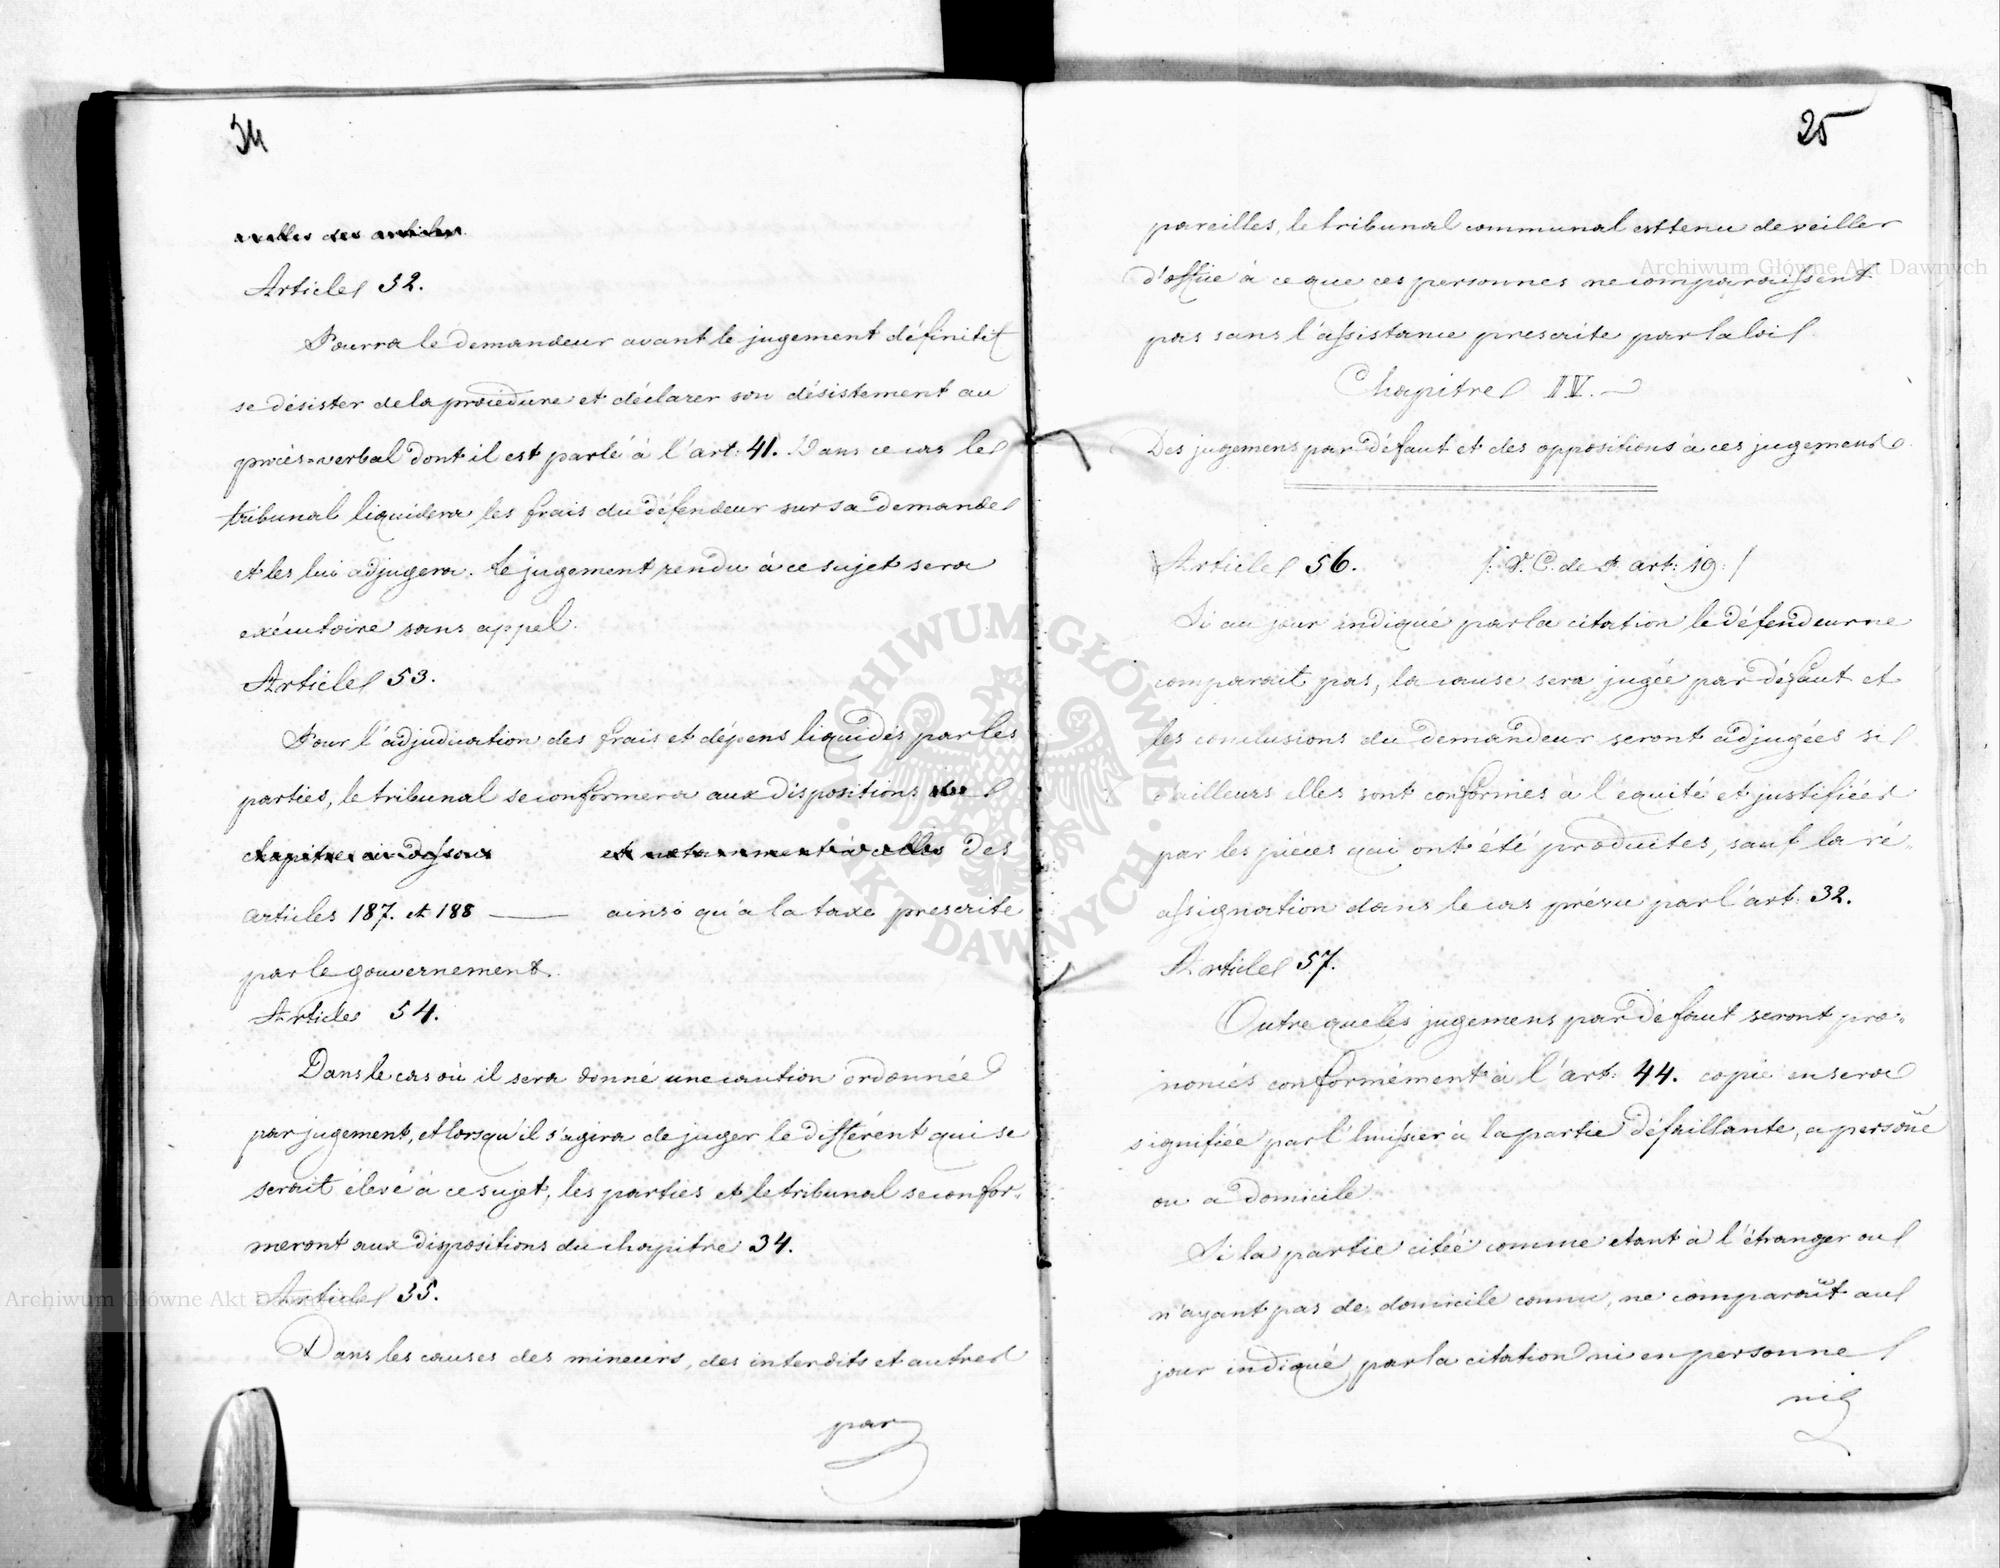 34
celles des articles
Article 32.
Pourra le demandeur avant le jugement définitif
se désister de la procédure et déclarer son désistement au
procès=verbal dont il est parlé à l'art: 41. Dans ce cas le
tribunal liquidera les frais du défendeur sur sa demande
et les lui adjugera. Le jugement rendu à ce sujet sera
exécutoire sans appel.
Article 53.
Pour l'adjudication des frais et dépens liquidés par les
parties, le tribunal se conformera aux dispositions de
chapitre ci-dessous et notamment à celles des
articles 187. et 188 — ainsi qu'à la taxe prescrite
par le gouvernement.
Article 54.
Dans le cas où il sera donné une caution ordonnée
par jugement, et lorsqu'il s'agira de juger le différent qui se
serait élevé à ce sujet, les parties et le tribunal se confor=
meront aux dispositions du chapitre 34.
Article 35.
Dans les causes des mineurs, des interdits et autres
par
25
pareilles, le tribunal communal est tenu de veiller
d'office à ce que ces personnes ne comparaissent
pas sans l'assistance prescrite par la loi
Chapitre IV.
Des jugemens par défaut et des oppositions à ces jugemens.
Article 56. /: V. C. de P. art: 19 :/
Si au jour indiqué par la citation le défendeur ne
comparait pas, la cause sera jugée par défaut et
les conclusions du demandeur seront adjugées si
d'ailleurs elles sont conformes à l'équité et justifiées
par les pièces qui ont été produites, sauf la ré=
assignation dans le cas prévu par l'art: 32.
Article 57.
Outre que les jugemens par défaut seront pro=
noncés conformément à l'art: 44. copie en sera
signifiée par l'huissier à la partie défaillante, a persoñe
ou a domicile.
Si la partie citée comme etant à l'étranger ou
n'ayant pas de domicile connu, ne comparoît au
jour indiqué par la citation ni en personne
ni
Archiwum Główne Akt Dawnych
Archiwum Główne Akt Dawnych
ARCHIWUM GŁÓWNE · AKT DAWNYCH ·